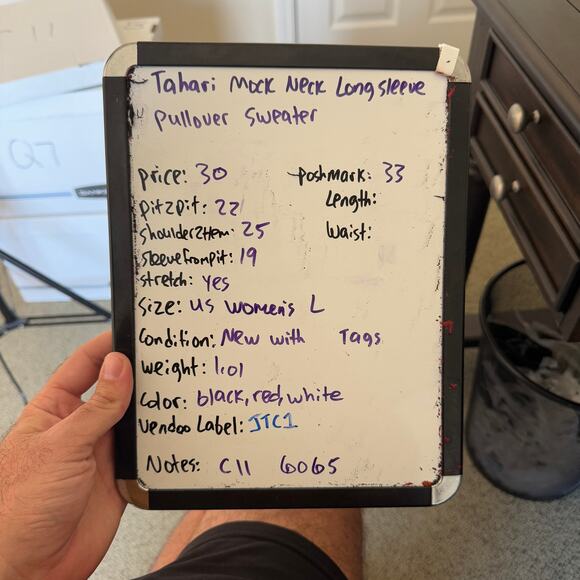 Tahari Mock Neck Longsleeve
Pullover Sweater
Price: 30
Poshmark: 33
Pit2pit: 22
Length:
Shoulder2Hem: 25
Waist:
SleeveFromPit: 19
Stretch: Yes
Size: US Women's L
Condition: New with Tags
Weight: 1.01
Color: black, red, white
Vendoo Label: JTC1
Notes: C11 6065
Q7